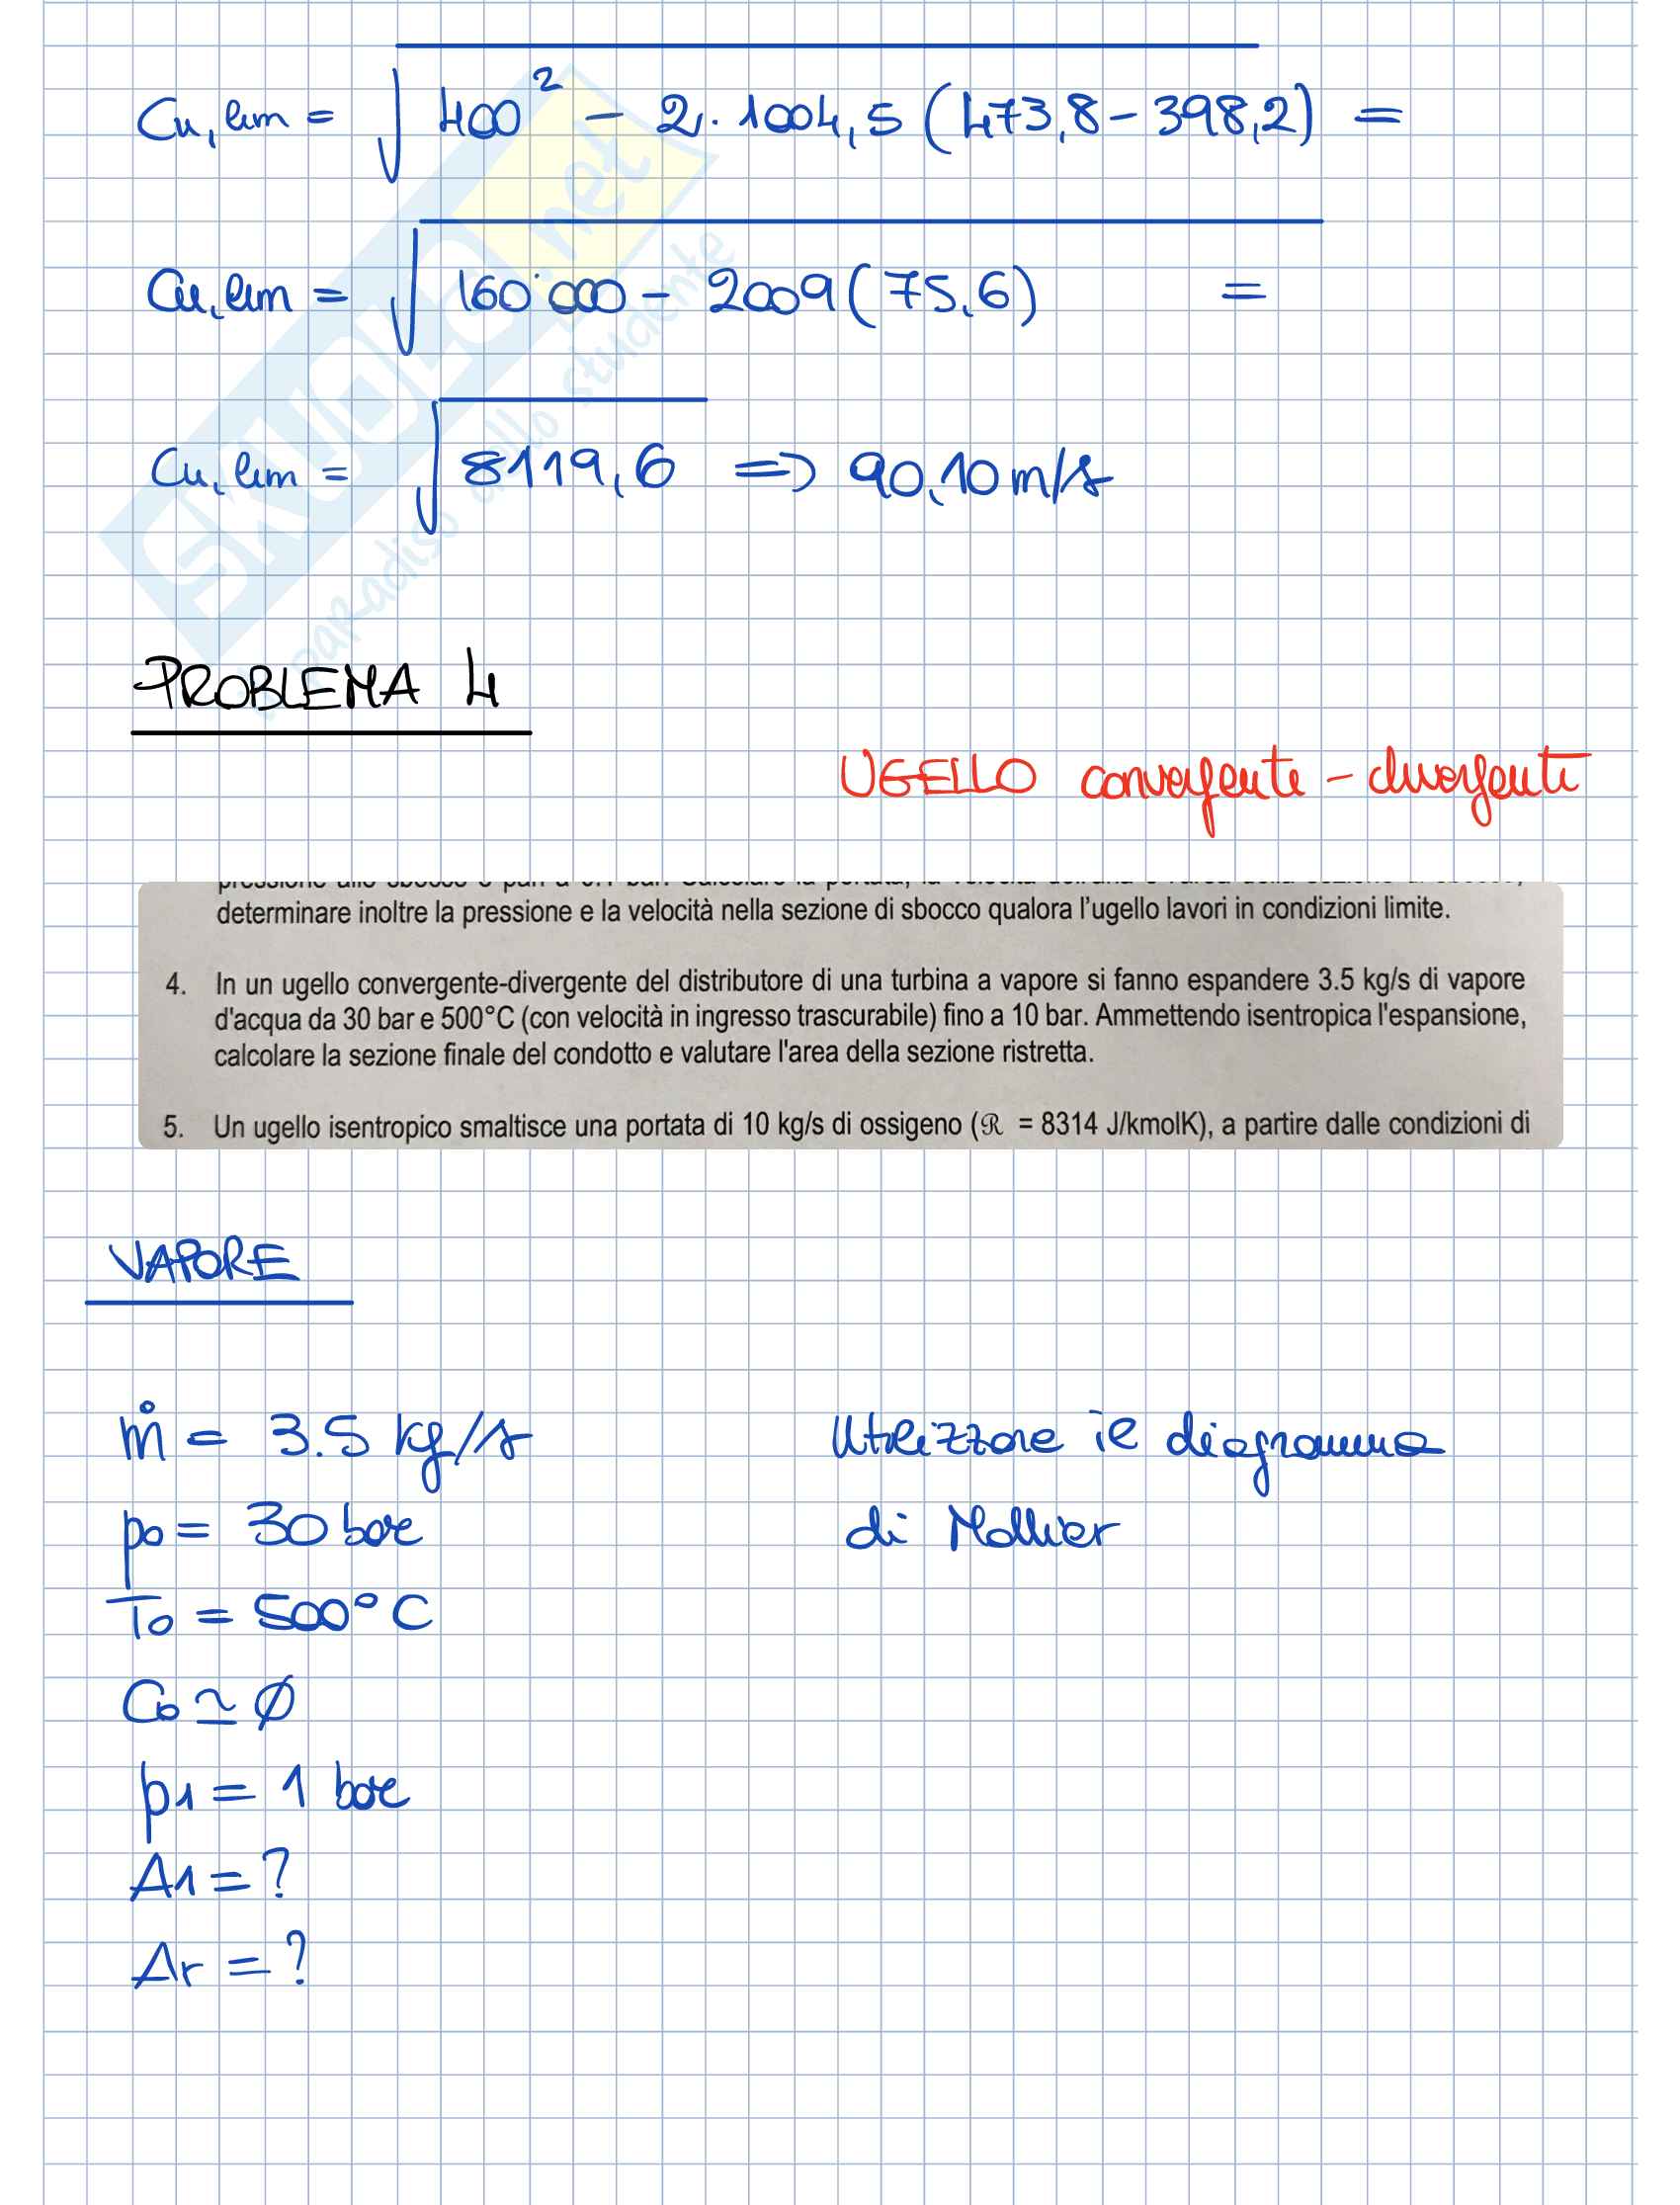 Cu,lim = √400² - 2. 1004,5 (473,8 - 398,2) =
Cu,lim = √160˙000 - 2009 (75,6) =
Cu,lim = √8119,6 => 90,10 m/s
PROBLEMA 4
UGELLO convergente - divergente
determinare inoltre la pressione e la velocità nella sezione di sbocco qualora l'ugello lavori in condizioni limite.
4. In un ugello convergente-divergente del distributore di una turbina a vapore si fanno espandere 3.5 kg/s di vapore
d'acqua da 30 bar e 500°C (con velocità in ingresso trascurabile) fino a 10 bar. Ammettendo isentropica l'espansione,
calcolare la sezione finale del condotto e valutare l'area della sezione ristretta.
5. Un ugello isentropico smaltisce una portata di 10 kg/s di ossigeno (ℛ = 8314 J/kmolK), a partire dalle condizioni di
VAPORE
ṁ = 3.5 kg/s Utilizzare il diagramma
p0 = 30 bar di Mollier
T0 = 500° C
C0 ≃ Ø
p1 = 1 bar
A1 = ?
Ar = ?
SKUOLA.net
il paradiso dello studente